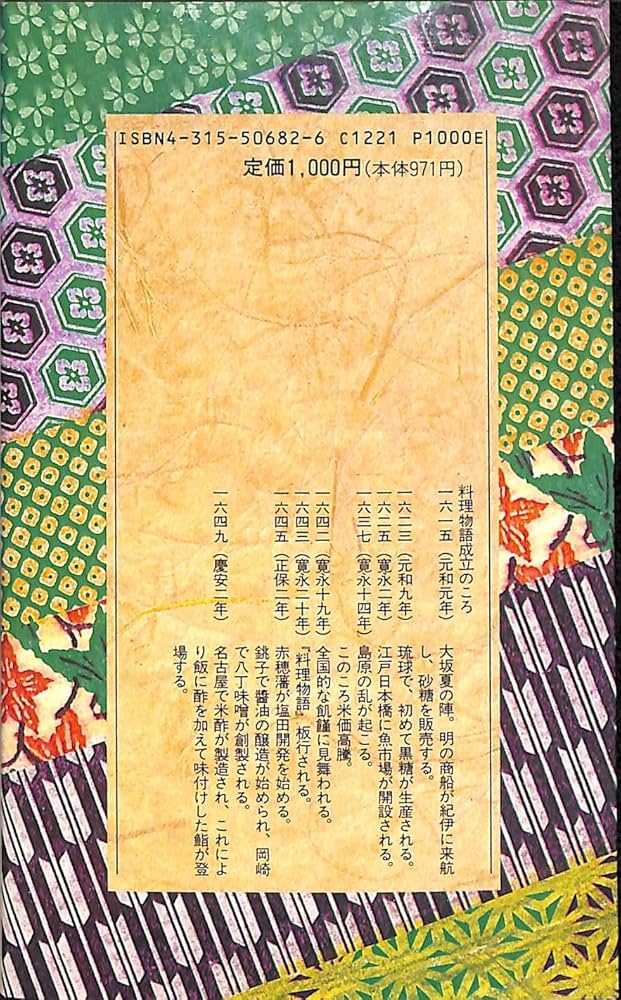 ISBN4-315-50682-6 C1221 P1000E
定価1,000円(本体971円)
料理物語成立のころ
一六一五（元和元年） 大坂夏の陣。明の商船が紀伊に来航
し、砂糖を販売する。
一六二三（元和九年） 琉球で、初めて黒糖が生産される。
一六二五（寛永二年） 江戸日本橋に魚市場が開設される。
一六三七（寛永十四年） 島原の乱が起こる。
このころ米価高騰。
一六四二（寛永十九年） 全国的な飢饉に見舞われる。
一六四三（寛永二十年） 『料理物語』板行される。
一六四五（正保二年） 赤穂藩が塩田開発を始める。
銚子で醬油の醸造が始められ、岡崎
で八丁味噌が創製される。
一六四九（慶安二年） 名古屋で米酢が製造され、これによ
り飯に酢を加えて味付けした鮨が登
場する。